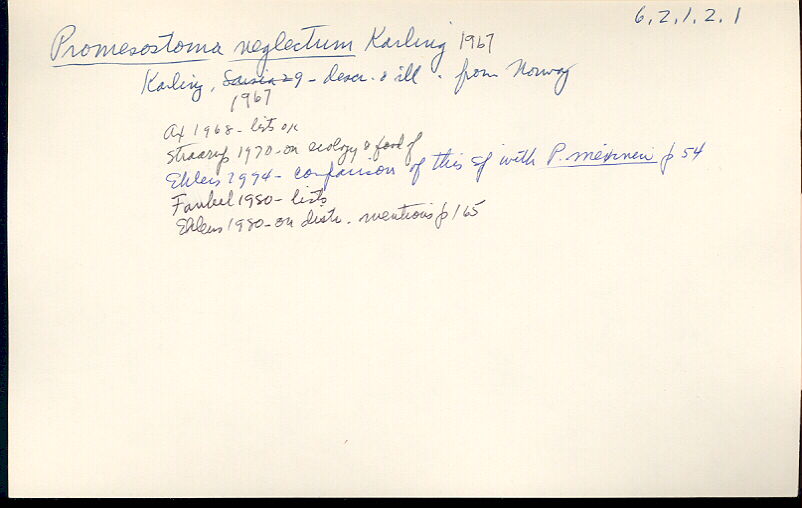 6.2.1.2.1
Promesostoma neglectum Karling 1967
Karling, Sarsia 29 - descr. & ill. from Norway
1967
Ax 1968 - lists
Straarup 1970 - on ecology & food of
Ehlers 1974 - comparison of this sp with P. meixneri p 54
Faubel 1980 - lists
Ehlers 1980 - on distr. mentions p 165